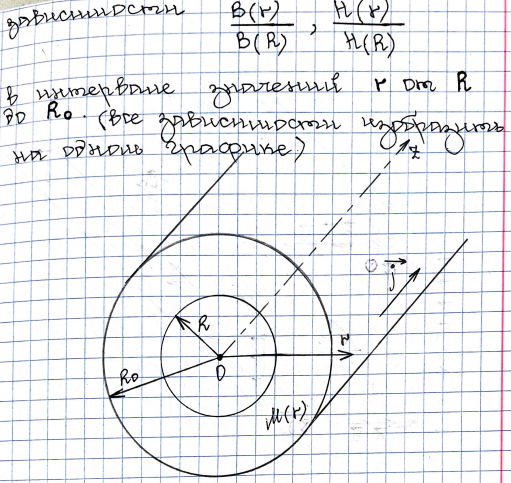 зависимости B(r)/B(R), H(r)/H(R)
в интервале значений r от R
до R₀. (Все зависимости изобразить
на одном графике)
z
j
R
r
R₀
0
μ(r)